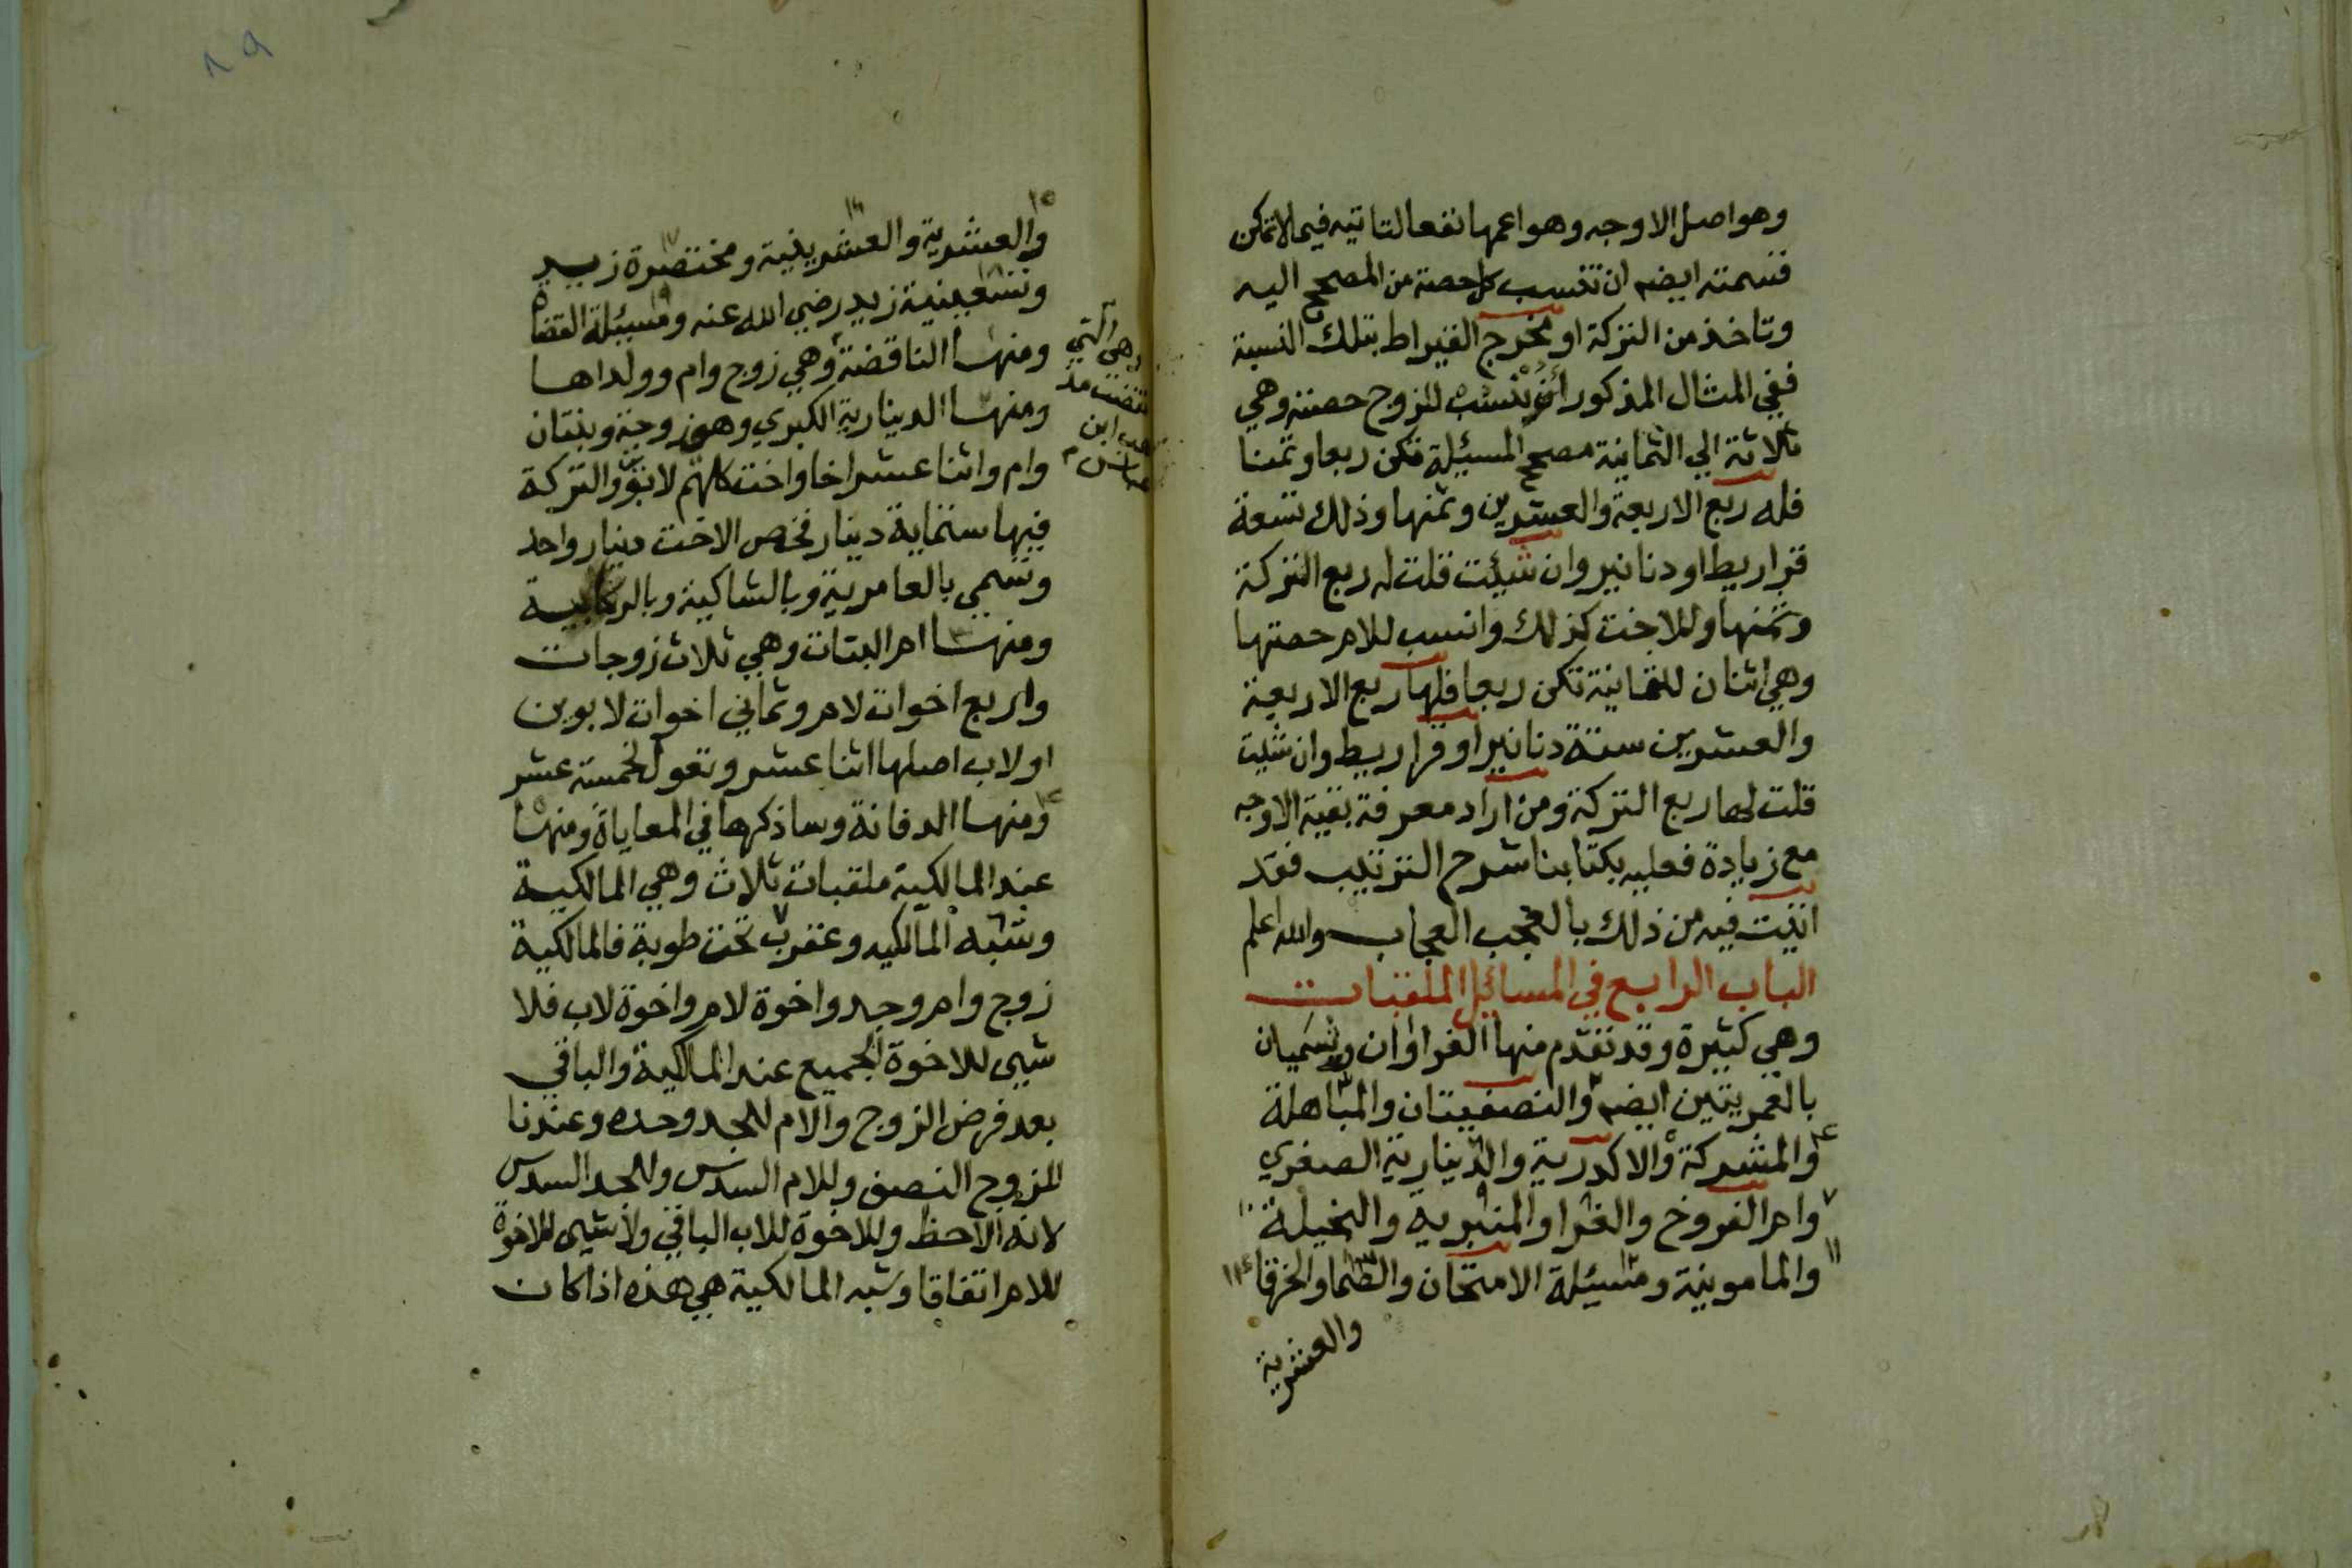 وهو اصل الاوجه وهو اعمها نفعا لتاتيه فيما لا تمكن
قسمته ايضم ان تنسب كل حصة من المصحح اليه
وتاخذ من التركة او مخرج القيراط بتلك النسبة
ففي المثال المذكور انفا تنسب للزوج حصته وهي
ثلاثة الي الثمانية مصحح المسيئلة تكن ربعا وثمنا
فله ربع الاربعة والعشرين وثمنها وذلك تسعة
قراريط او دنانير وان شيئت قلت له ربع التركة
وثمنها وللاخت كذلك وانسب للام حصتها
وهي اثنان للثمانية تكن ربعا فلها ربع الاربعة
والعشرين ستة دنانير او قراريط وان شئت
قلت لها ربع التركة ومن اراد معرفة بقية الاوجه
مع زيادة فعليه بكتابنا شرح الترتيب فقد
اتيت فيه من ذلك بالعجب العجاب والله اعلم
الباب الرابع في المسائل الملقبات
وهي كثيرة وقد تقدم منها الغراوان ويسميان
بالعمريتين ايضم والنصفيتان والمباهلة
والمشركة والاكدرية والدينارية الصغري
وام الفروخ والغرا والمنبرية والبخيلة
والمامونية ومسيئلة الامتحان والصما والخرقا
والعشرية
١٥ ١٦
والعشرية والعشرينية ومختصرة زيد
وتسعينية زيد رضي الله عنه ومسيئلة القضاه
ومنها الناقضة وهي زوج وام وولداها
وهي التي
نقضت مذ
هب ابن
عباس م
ومنها الدينارية الكبري وهي زوجة وبنتان
وام واثنا عشر اخا واخت كلهم لابوين والتركة
فيها ستماية دينار فخص الاخت دينار واحد
وتسمي بالعامرية وبالشاكية وبالركابية
ومنها ام البنات وهي ثلاث زوجات
واربع اخوات لام وثماني اخوات لابوين
او لاب اصلها اثنا عشر وتعول لخمسة عشر
ومنها الدفانة وساذكرها في المعاياة ومنها
عند المالكية ملقبات ثلاث وهي المالكية
وشبه المالكيه وعقرب تحت طوبة فالمالكية
زوج وام وجد واخوة لام واخوة لاب فلا
شيى للاخوة الجميع عند المالكية والباقي
بعد فرض الزوج والام للجد وحده وعندنا
للزوج النصف وللام السدس وللجد السدس
لانه الاحظ وللاخوة للاب الباقي ولا شيى للاخوة
للام اتفاقا وشبه المالكية هي هذه اذا كان
٨٩